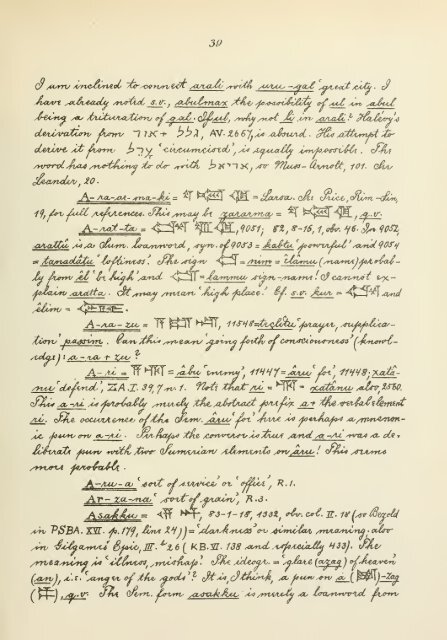 39
I am inclined to connect arali with uru-gal 'great city.' I
have already noted s.v., abulmax the possibility of ul in abul
being a trituration of gal. If ul, why not li in arali? Halevy's
derivation from אור + גלל, AV. 2667, is absurd. His attempt to
derive it from ערל 'circumcised', is equally impossible. The
word has nothing to do with אריאל, so Muss-Arnolt, 101. See
Leander, 20.
A-ra-ar-ma-ki = = Larsa. See Price, Rim-Sin,
19, for full references. This may be zararma = , q.v.
A-rat-ta = , 9051; 82, 8-16, 1, obv. 46. In 9052,
arattû is a Sum. loanword, syn. of 9053 = kabtu 'powerful' and 9054
= tanadâtu 'loftiness.' The sign = nim = elâmu (name) probab-
ly from êl 'be high' and = lammu sign-name! I cannot ex-
plain aratta. It may mean 'high place.' Cf. s.v. kur = and
êlim = .
A-ra-zu = , 11548 = teçlîtu 'prayer, supplica-
tion' passim. Can this mean 'going forth of consciousness' (knowl-
edge): a-ra + zu?
A-ri = = âbu 'enemy', 11447 = âru 'foe', 11448; xatâ-
nu 'defend', Z.A. I. 39, 7 n. 1. Note that ri = = xatânu also, 2580.
This a-ri is probably merely the abstract prefix a + the verbal element
ri. The occurrence of the Sem. âru 'foe' here is perhaps a mnemon-
ic pun on a-ri. Perhaps the converse is true and a-ri was a de-
liberate pun with two Sumerian elements on âru! This seems
more probable.
A-ru-a 'sort of service' or 'office', R. 1.
Ar-za-na 'sort of grain', R. 3.
Asakku = , 83-1-18, 1332, obv. col. II. 18 (so Bezold
in PSBA. XVI. p. 179, line 24)) = 'darkness' or similar meaning, also
in Gilgameš Epic, III. 26 (KB. VI. 138 and especially 433). The
meaning is 'illness, mishap.' The ideogr. = 'glare (azag) of heaven'
(an), i.e. 'anger of the gods'? It is, I think, a pun on a ()-zag
(), q.v. The Sem. form asakku is merely a loanword from